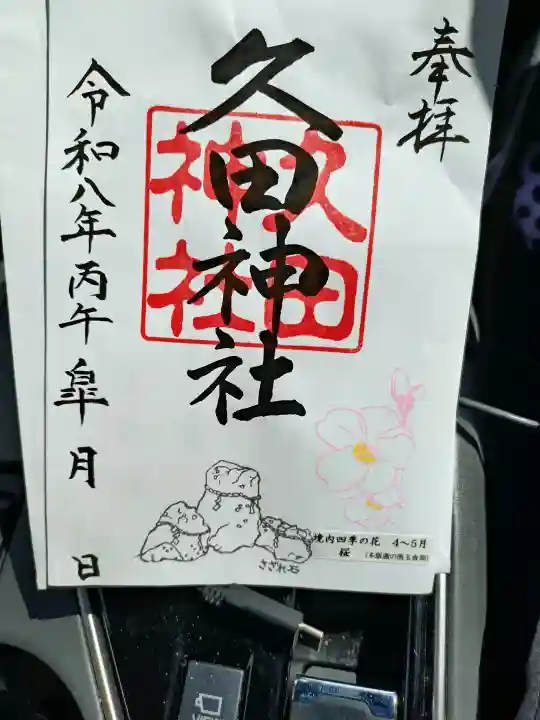 奉拝
久田神社
久田
神社
令和八年丙午 皐月 日
さざれ石
境内四季の花 4～5月
桜